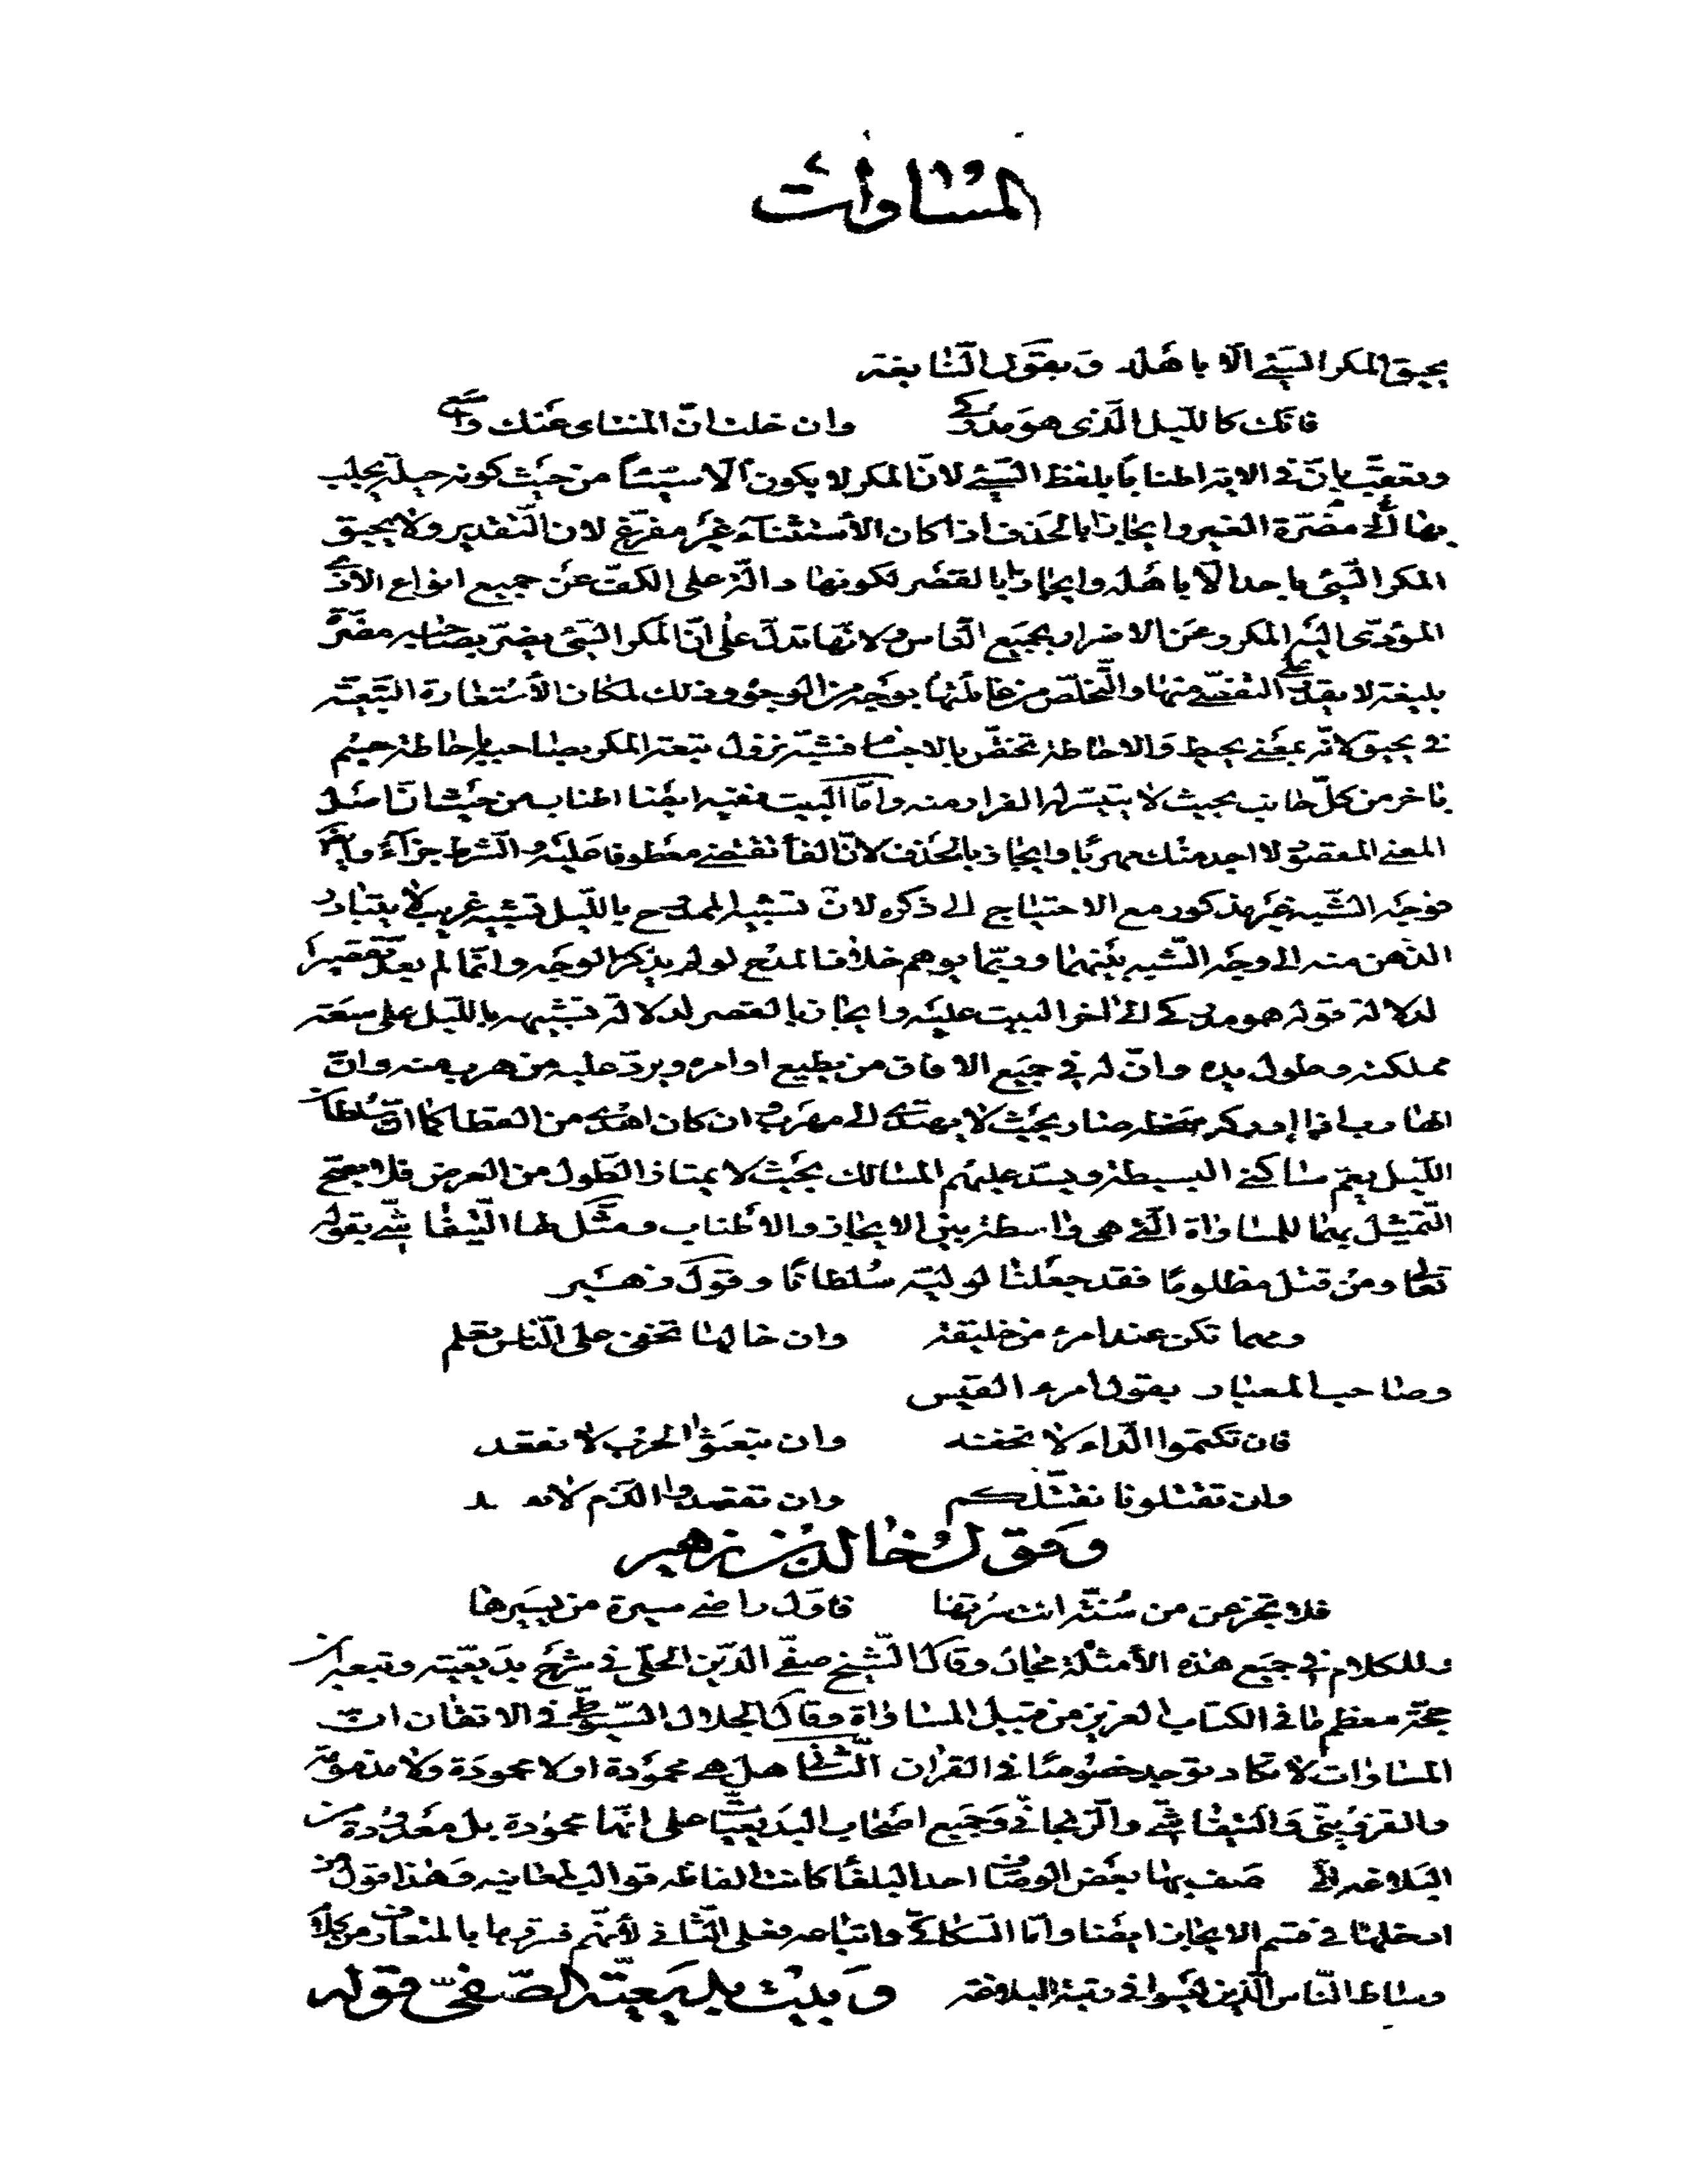 المساوات
يحيق المكر السيّئ الّا باهله وبقول النّابغة
فانّك كاللّيل الّذى هو مدركى وان خلت انّ المنتاى عنك واسع
وتعقّب بانّ فى الاية اطنابا بلفظ السيّئ لانّ المكر لا يكون الّا سيّئا من حيث كونه حيلة يجلب
بها الى مضرّة الغير وايجازا بالحذف اذا كان الاستثناء غير مفرّغ لان التّقدير ولا يحيق
المكر السّيّئ باحد الّا باهله وايجازا بالقصر لكونها دالّة على الكفّ عن جميع انواع الاذى
المؤدّى اليه المكر وعن الاضرار بجميع النّاس ولانّها تدلّ على انّ المكر السّيّئ يضرّ بصاحبه مضرّة
بليغة لا يقدر على التفصّى منها والتّخلّص من غائلتها بوجه من الوجوه وذلك لمكان الاستعارة التّبعيّة
فى يحيق لانّه بمعنى يحيط والاحاطة تختصّ بالاجسام فشبّه نزول تبعة المكر بصاحبه باحاطة جسم
باخر من كلّ جانب بحيث لا يتيسّر له الفرار منه وامّا البيت ففيه ايضا اطناب من حيث انّ اصل
المعنى المقصود لا اجد منك مهربا وايجاز بالحذف لانّ الفاء تقتضى معطوفا عليه والشرط جزاء
فوجه الشّبه غير مذكور مع الاحتياج الى ذكره لانّ تشبيه الممدوح باللّيل تشبيه غريب لا يتبادر
الذهن منه الى وجه الشّبه بينهما وربّما يوهم خلاف المدح لو لم يذكر الوجه وانّما لم يعدّ تقصيرا
لدلالة قوله هو مدركى الى اخر البيت عليه وايجاز بالقصر لدلالة تشبيهه باللّيل على سعة
مملكته وطول يده وانّ له فى جميع الافاق من يطيع اوامره ويردّ عليه من هرب منه وانّ
الهارب اذا ادركه سخطه صار بحيث لا يهتدى الى مهرب وان كان اهدى من القطا كما انّ سلطان
اللّيل يعمّ ساكنى البسيطة ويسدّ عليهم المسالك بحيث لا يمتاز الطّول من العرض فلا يصحّ
التّمثيل بهما للمساواة الّتى هى واسطة بين الايجاز والاطناب ومثّل لها التّيفاشىّ بقوله
تعالى ومن قتل مظلوما فقد جعلنا لوليّه سلطانا وقول زهير
ومهما تكن عند امرء من خليقة وان خالها تخفى على النّاس تعلم
وصاحب المعيار بقول امرء القيس
فان تكتموا الدّاء لا نخفه وان تبعثوا الحرب لا نقعد
وان تقتلونا نقتّلكم وان تقصدوا الدّم لانقصد
وقول خالد بن زهير
فلا تجزعن من سنّة انت سرتها فاوّل راضى سيرة من يسيرها
وللكلام فى جميع هذه الأمثلة مجال وقال الشّيخ صفّى الدّين الحلّى فى شرح بديعيّته وتبعه ابن
حجّة معظم ما فى الكتاب العزيز من قبيل المساواة وقال الجلال السّيوطى فى الاتقان انّ
المساوات لا تكاد توجد خصوصا فى القران الثّانى هل هى محمودة او لا محمودة ولا مذمومة
والقزوينّى والتيفاشّى والزنجانى وجميع اصحاب البديعيّات على انّها محمودة بل معدودة من
البلاغه الّتى وصف بها بعض الوصّاف احد البلغاء كانت الفاظه قوالب لمعانيه وهذا قول من
ادخلها فى قسم الايجاز ايضا وامّا السّكاكىّ واتباعه فعلى الثّانى لأنّهم فسّروها بالمتعارف من كلام
اوساط النّاس الّذين ليسوا فى رتبة البلاغة وبيت بديعيّة الصّفىّ قوله